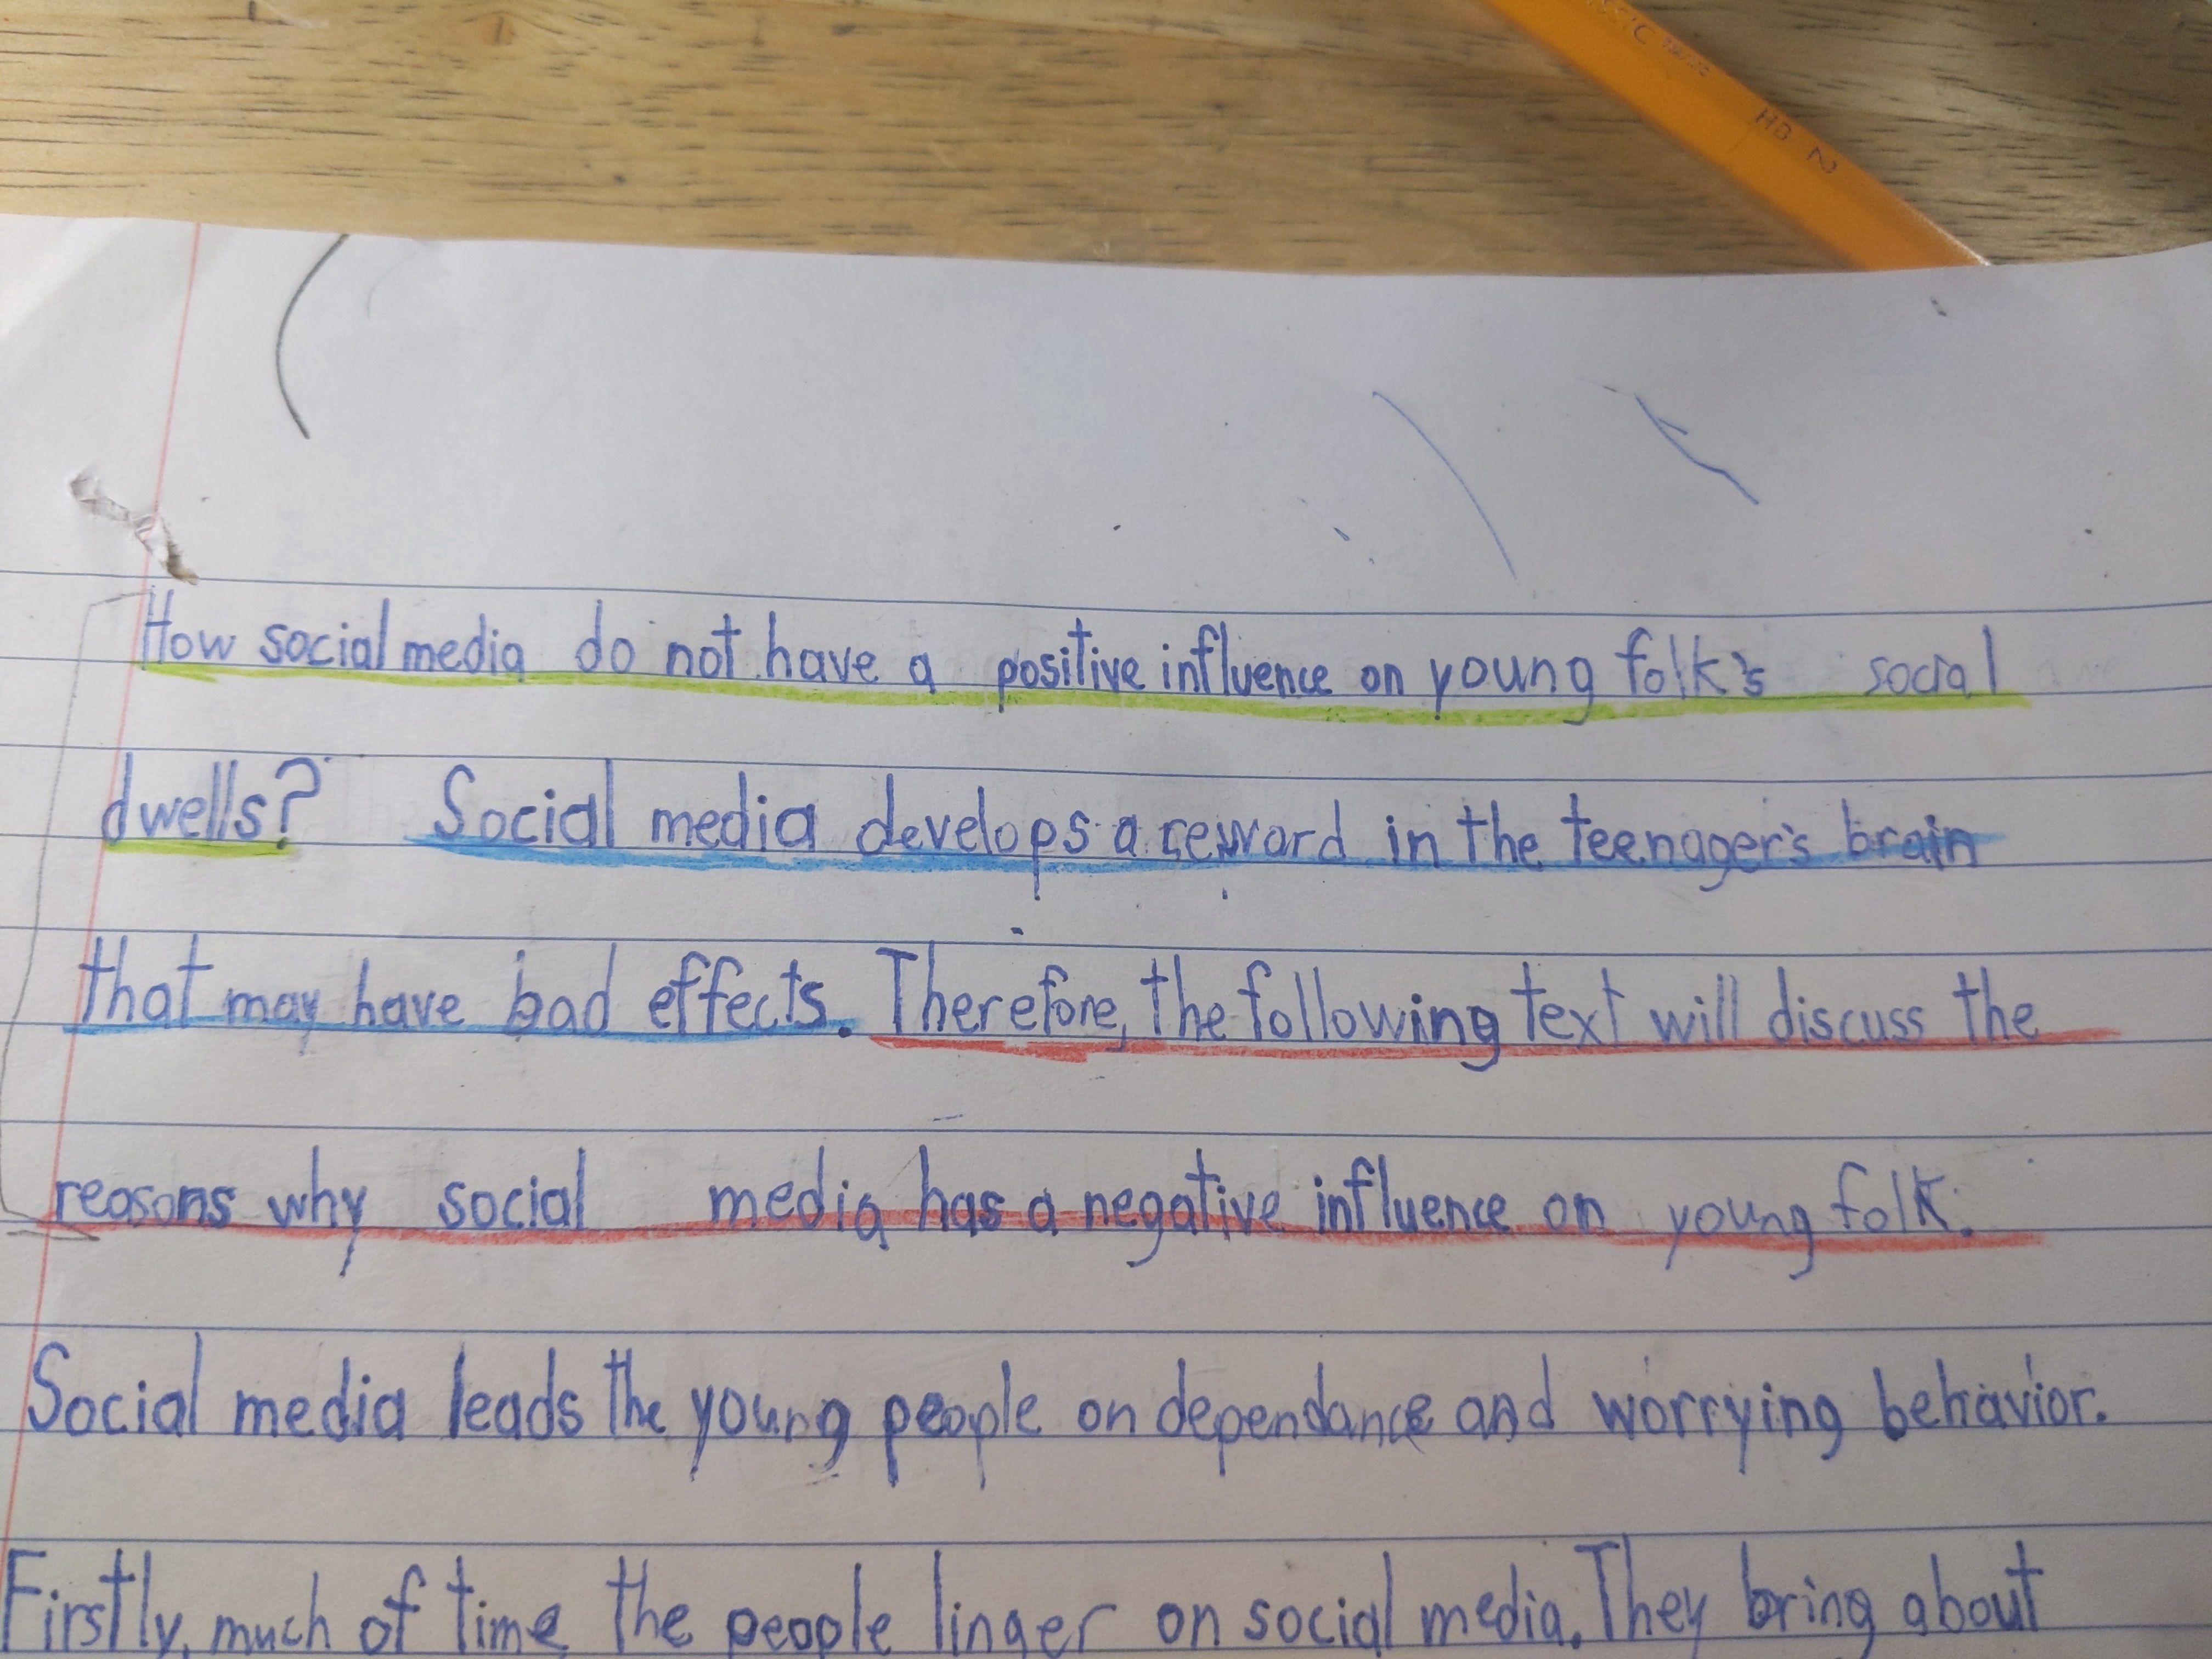 HB 2
How social media do not have a positive influence on young folk's social
dwells? Social media develops a reward in the teenager's brain
that may have bad effects. Therefore, the following text will discuss the
reasons why social media has a negative influence on young folk.
Social media leads the young people on dependance and worrying behavior.
Firstly, much of time the people linger on social media. They bring about